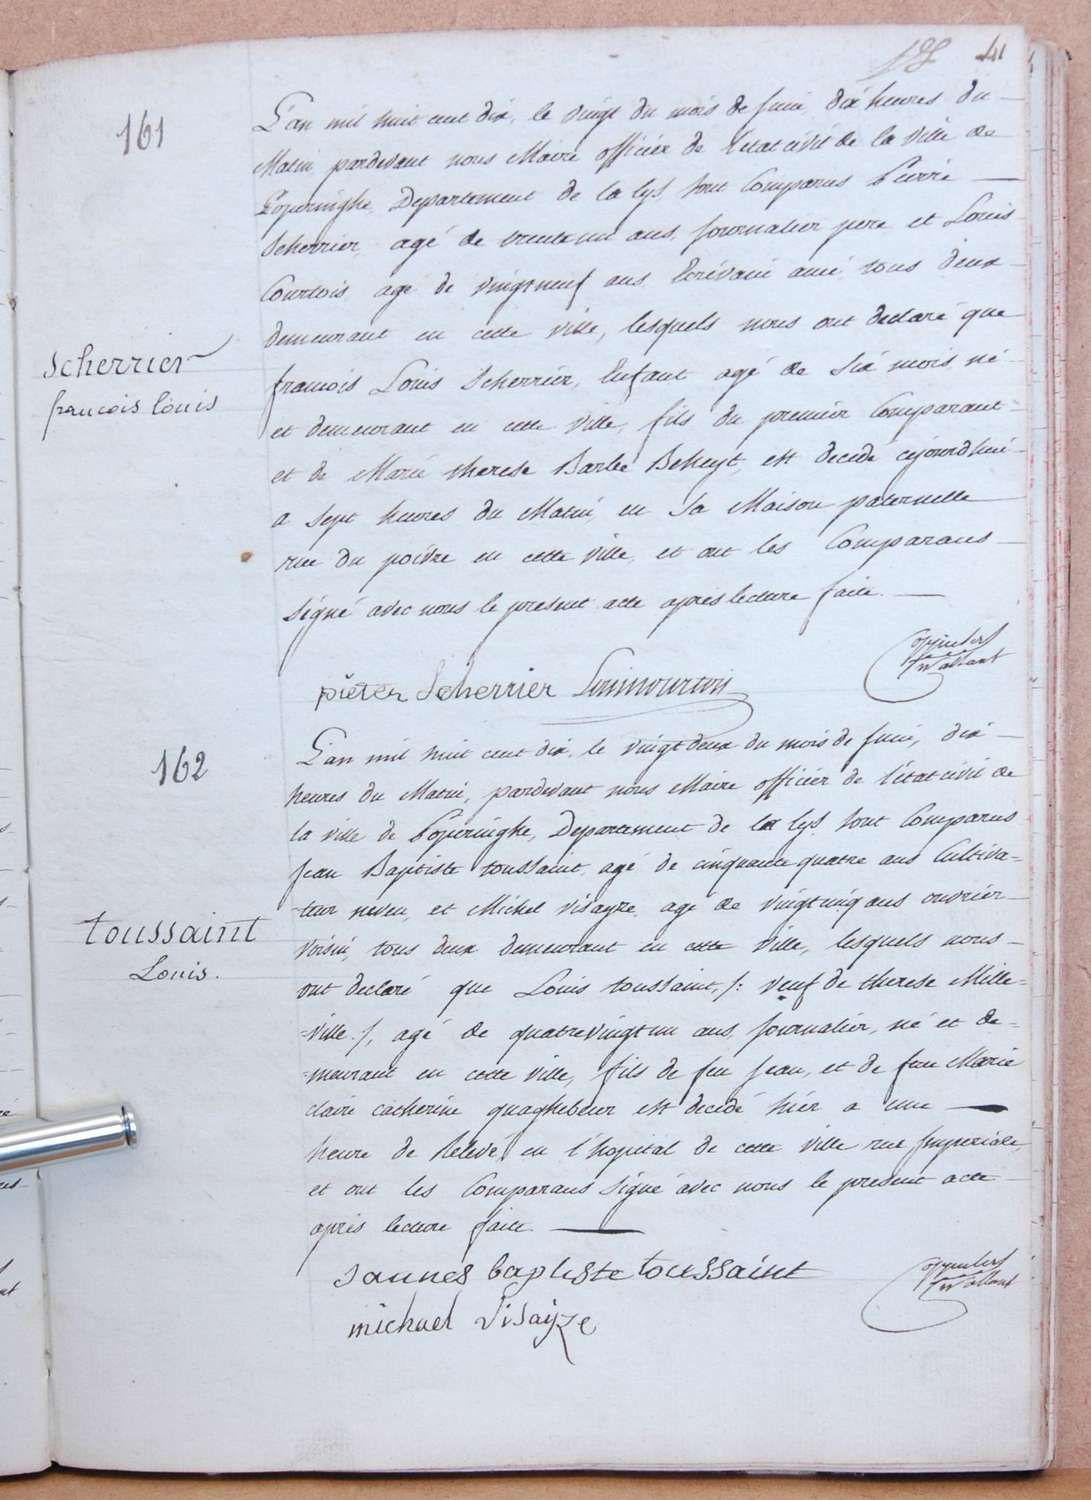 41
161
L'an mil huit cent dix, le vingt du mois de juin, dix heures du
Matin, pardevant nous Maire officier de l'état civil de la ville de
Poperinghe, Departement de la lys, sont Comparus Pierre
Scherrier, agé de trente un ans, journalier pere et Louis
Courtois agé de vingt neuf ans, Ecrivain ami tous deux
demeurant en cette ville, lesquels nous ont declaré que
Scherrier
francois Louis Scherrier, Enfant agé de Six mois, né
francois louis
et demeurant en cette ville, fils du premier Comparant
et de Marie therese Barbe Beheyt, est decedé cejourdhui
a sept heures du Matin, en sa Maison paternelle
rue du poivre en cette ville, et ont les Comparans
signé avec nous le present acte après lecture faite.
pieter Scherrier
162
L'an mil huit cent dix, le vingt deux du mois de juin, dix
heures du Matin, pardevant nous Maire officier de l'état civil de
la ville de Poperinghe, Departement de la lys, sont Comparus
Jean Baptiste toussaint, agé de cinquante quatre ans Cultiva=
toussaint
=teur neveu, et Michel visayze, agé de vingt cinq ans ouvrier
Louis.
voisin, tous deux demeurant en cette ville, lesquels nous
ont declaré que Louis toussaint, /: veuf de therese Mille=
=ville :/, agé de quatrevingt un ans, journalier, né et de=
=meurant en cette ville, fils de feu jean, et de feue Marie
claire catherine quaghebeur est decedé hier a une
heure de Relevé, en l'hopital de cette ville rue Imperiale,
et ont les Comparans signé avec nous le present acte
après lecture faite.
Jannes baptiste toussaint
michael Visayze